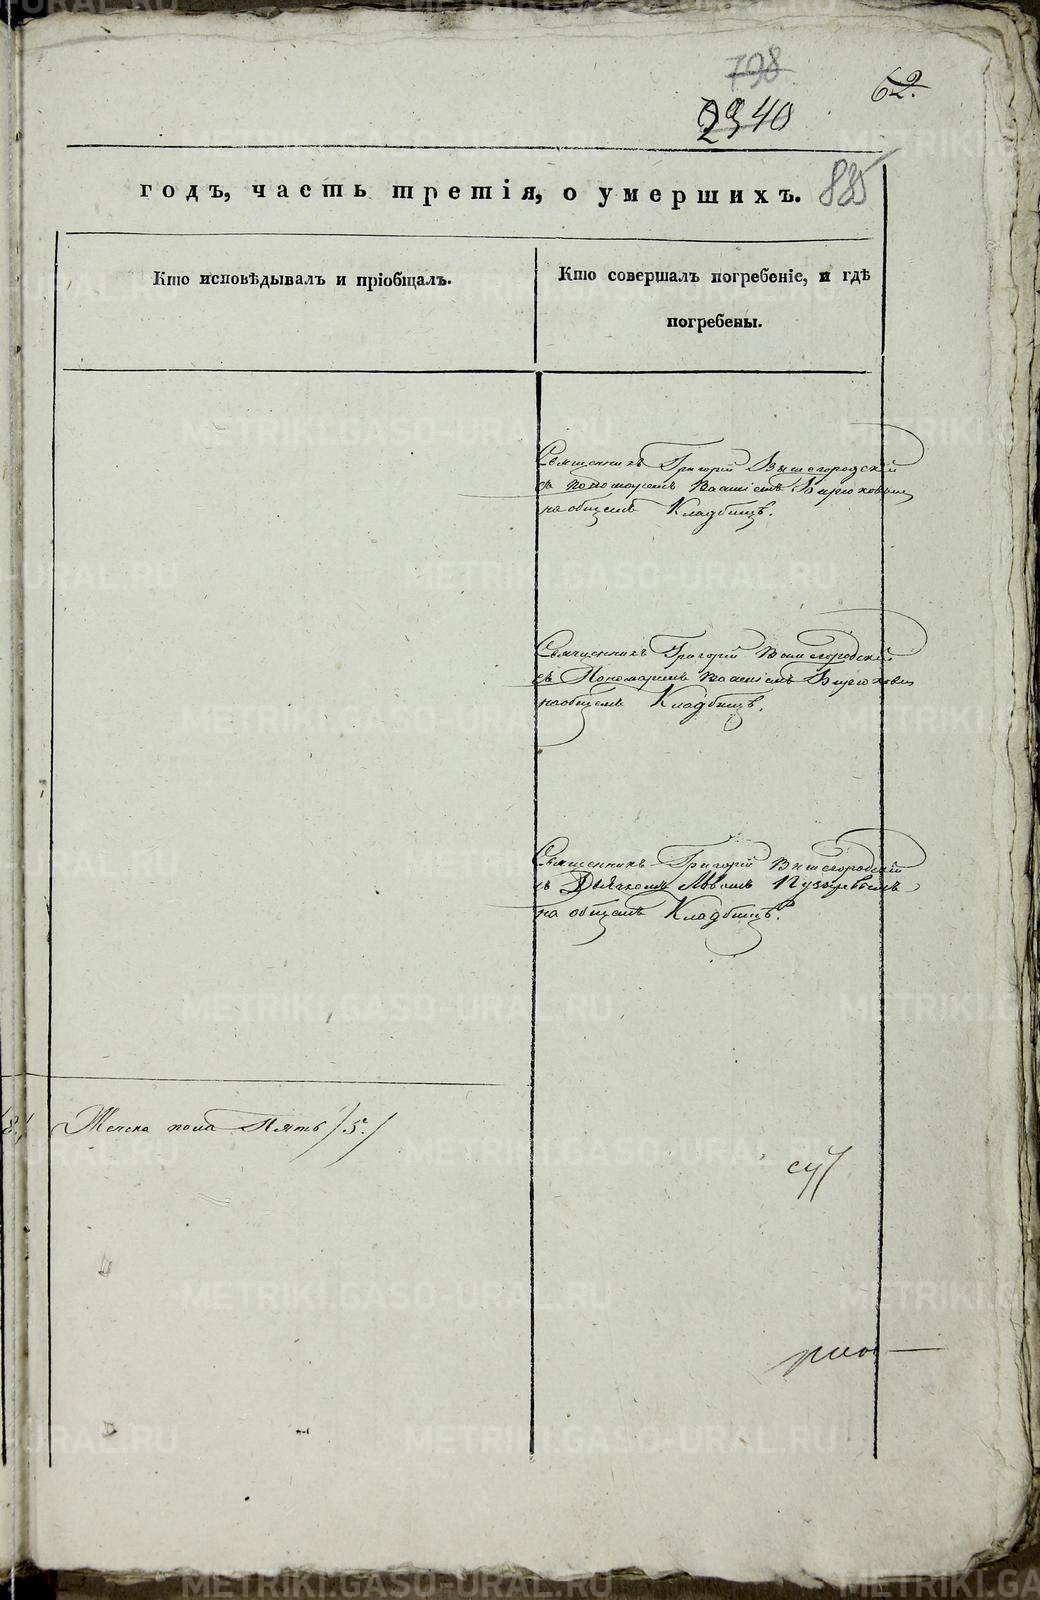 798
62.
2340
годъ, часть третія, о умершихъ. 885
Кто исповѣдывалъ и пріобщалъ.
Кто совершалъ погребеніе, и гдѣ
погребены.
Священникъ Григорій Вышегородскій
съ пономаремъ Бирюковым
на общемъ Кладбищѣ.
Священникъ Григорій Вышегородскій
съ Пономаремъ Бирюковым
на общемъ Кладбищѣ.
Священникъ Григорій Вышегородскій
съ Дьячкомъ Львомъ Пузыревымъ
на общемъ Кладбищѣ.
Женска пола Пять /5./
METRIKI.GASO-URAL.RU